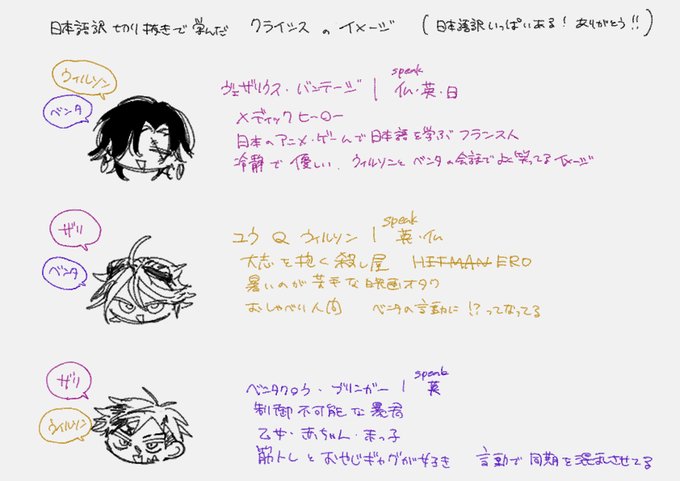 日本語訳切り抜きで学んだ クライシス の イメージ (日本語訳いっぱいある！ありがとう!!)
ウィルソン
ベンタ
ヴェザリウス・バンテージ | speak 仏・英・日
メディックヒーロー
日本のアニメ・ゲームで日本語を学ぶフランス人
冷静で優しい。ウィルソンとベンタの会話でよく笑ってるイメージ
ザリ
ベンタ
ユウ Q ウィルソン | speak 英・仏
大志を抱く殺し屋 HITMAN ERO
暑いのが苦手な映画オタク
おしゃべり人間 ベンタの言動に!?ってなってる
ザリ
ウィルソン
ベンタクロウ・ブリンガー | speak 英
制御不可能な暴君
乙女・赤ちゃん・末っ子
筋トレとおやじギャグが好き 言動で同期を混乱させてる